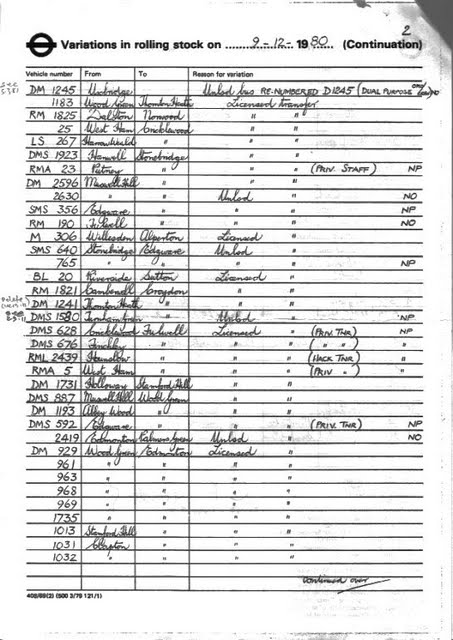 2
Variations in rolling stock on 9-12-1980 (Continuation)
Vehicle number From To Reason for variation
DM 1245 Uxbridge Unlsd bus RE-NUMBERED D1245 (DUAL PURPOSE
1183 Wood Green Thornton Heath Licensed transfer
RM 1825 Dalston Norwood " "
25 West Ham Cricklewood " "
LS 267 Harrow Weald " " "
DMS 1923 Hanwell Stonebridge " "
RMA 23 Putney " " " (PRIV. STAFF) NP
DM 2596 Muswell Hill " " "
2630 " " Unlsd " NO
SMS 356 Edgware " " " NP
RM 190 Fulwell " " " NO
M 306 Willesden Alperton Licensed "
SMS 640 Stonebridge Edgware Unlsd "
765 " " " " NP
BL 20 Riverside Sutton Licensed "
RM 1821 Camberwell Croydon " "
DM 1241 Thornton Heath " " "
DMS 1580 Turnham Green " Unlsd " NP
DMS 628 Cricklewood Fulwell Licensed " (PRIV. TNR) NP
DMS 676 Finchley " " " ( " " ) "
RML 2439 Hounslow " " " (HACK TNR) "
RMA 5 West Ham " " " (PRIV " ) "
DM 1731 Holloway Stamford Hill " "
DMS 887 Muswell Hill Wood Green " "
DM 1193 Abbey Wood " " "
DMS 592 Edgware " " " (PRIV. TNR) NP
2419 Edmonton Palmers Green Unlsd " NO
DM 929 Wood Green Edmonton Licensed "
961 " " " "
963 " " " "
968 " " " "
969 " " " "
1735 " " " "
1013 Stamford Hill " " "
1031 Clapton " " "
1032 " " " "
continued over
408/69(2) (500 3/79 121/1)